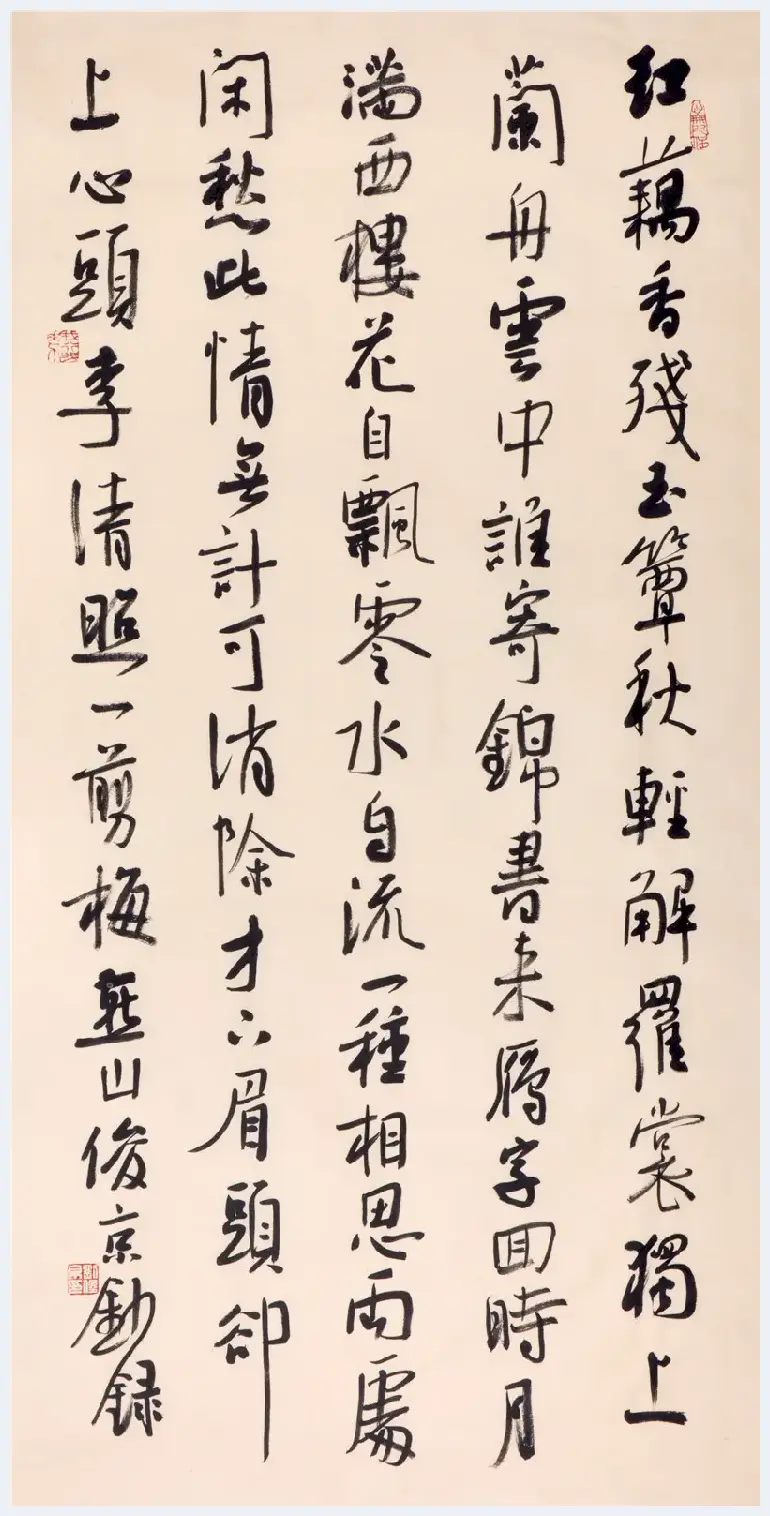 紅藕香殘玉簟秋輕解羅裳獨上
蘭舟雲中誰寄錦書来鴈字回時月
滿西樓花自飄零水自流一種相思兩處
閑愁此情無計可消除才下眉頭卻
上心頭李清照一剪梅燕山俊京鈔録